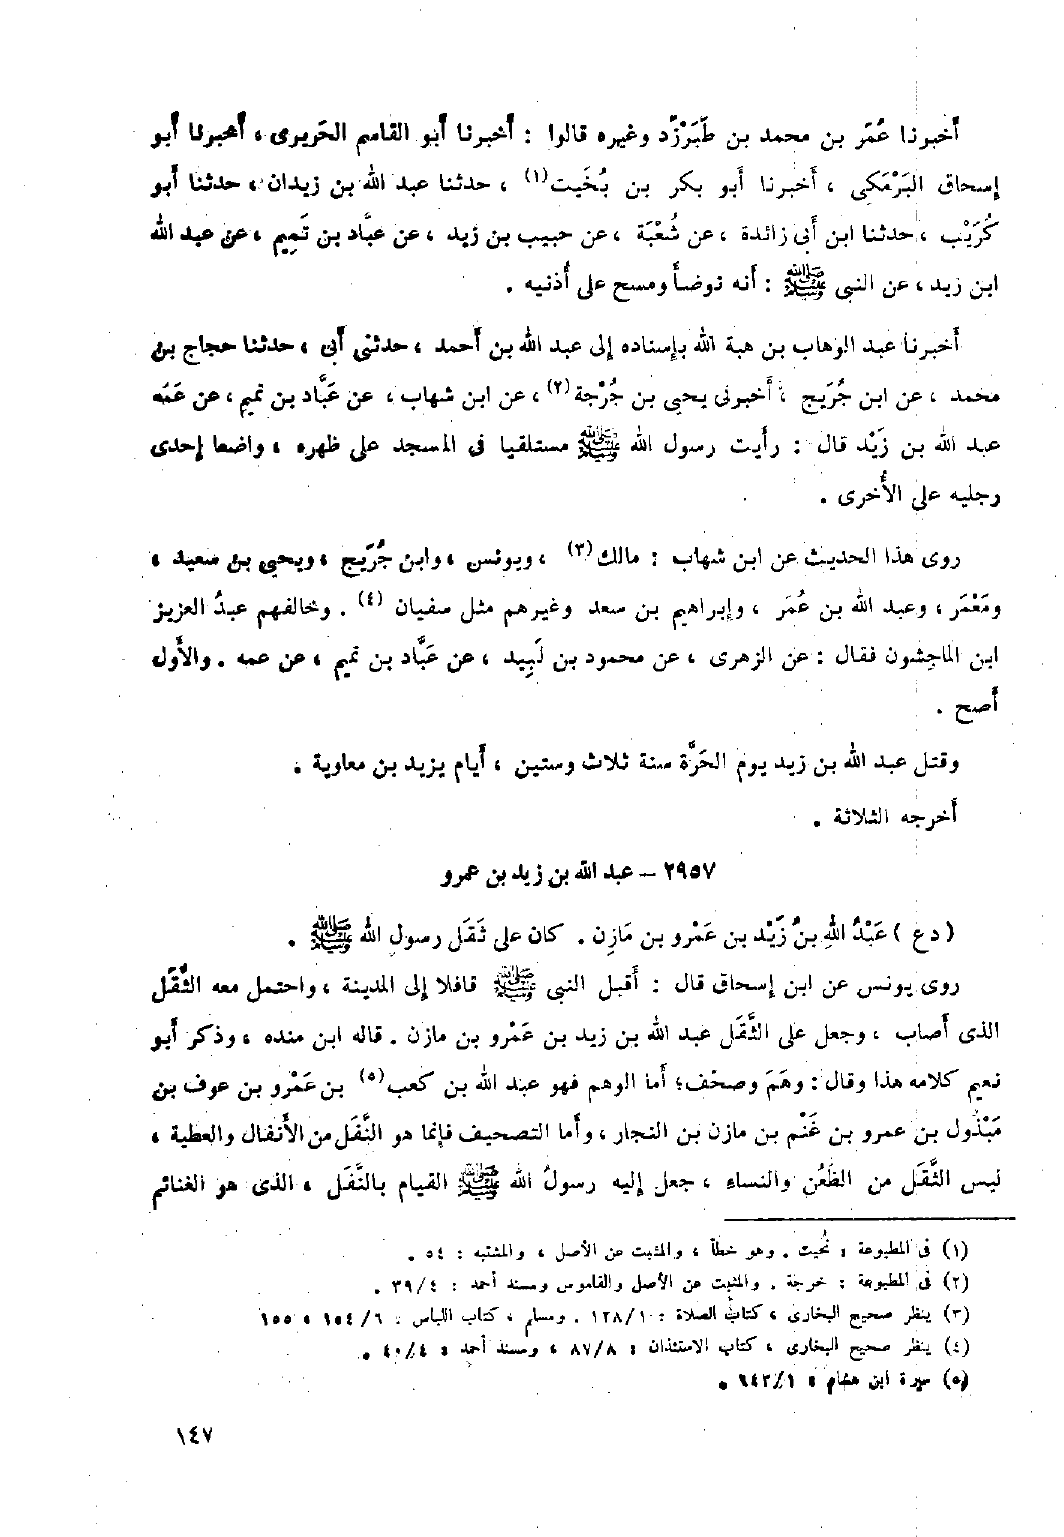 أخبرنا عُمَر بن محمد بن طَبَرْزَد وغيره قالوا : أخبرنا أبو القاسم الحَريرى ، أخبرنا أبو
إسحاق البَرْمَكى ، أخبرنا أبو بكر بن بُخَيت(١) ، حدثنا عبد الله بن زيدان ، حدثنا أبو
كُرَيْب ، حدثنا ابن أبى زائدة ، عن شُعْبَة ، عن حبيب بن زيد ، عن عبَّاد بن تَمِيم ، عن عبد الله
ابن زيد ، عن النبى ﷺ : أنه توضأ ومسح على أُذنيه .
أخبرنا عبد الوهاب بن هبة الله بإسناده إلى عبد الله بن أحمد ، حدثنى أبى ، حدثنا حجاج بن
محمد ، عن ابن جُرَيج ، أخبرنى يحيى بن جُرْجة(٢) ، عن ابن شهاب ، عن عَبَّاد بن تميم ، عن عَمِّه
عبد الله بن زَيْد قال : رأيت رسول الله ﷺ مستلقيا فى المسجد على ظهره ، واضعا إحدى
رجليه على الأُخرى .
روى هذا الحديث عن ابن شهاب : مالك(٣) ، ويونس ، وابن جُرَيج ، ويحيى بن سعيد ،
ومَعْمَر ، وعبد الله بن عُمَر ، وإبراهيم بن سعد وغيرهم مثل سفيان (٤) . وخالفهم عبدُ العزيز
ابن الماجِشون فقال : عن الزهرى ، عن محمود بن لَبِيد ، عن عَبَّاد بن تميم ، عن عمه . والأَول
أصح .
وقتل عبد الله بن زيد يوم الحَرَّة سنة ثلاث وستين ، أيام يزيد بن معاوية .
أخرجه الثلاثة .
٢٩٥٧ – عبد الله بن زيد بن عمرو
( دع ) عَبْدُ اللهِ بنُ زَيْد بن عَمْرو بن مَازِن . كان على ثَقَل رسولِ الله ﷺ .
روى يونس عن ابن إسحاق قال : أقبل النبى ﷺ قافلا إلى المدينة ، واحتمل معه الثَّقَل
الذى أصاب ، وجعل على الثَّقَل عبد الله بن زيد بن عَمْرو بن مازن . قاله ابن منده ، وذكر أبو
نعيم كلامه هذا وقال : وهَمَ وصحّف؛ أما الوهم فهو عبد الله بن كعب(٥) بن عَمْرو بن عوف بن
مَبْذُول بن عمرو بن غَنْم بن مازن بن النجار ، وأما التصحيف فإنما هو النَّفَل من الأَنفال والعطية ،
ليس الثَّقَل من الظَّعُن والنساء ، جعل إليه رسولُ الله ﷺ القيام بالنَّفَل ، الذى هو الغنائم
(١) فى المطبوعة : نُجيت . وهو خطأ ، والمثبت عن الأصل ، والمشتبه : ٥٤ .
(٢) فى المطبوعة : خرجة . والمثبت عن الأصل والقاموس ومسند أحمد : ٣٩/٤ .
(٣) ينظر صحيح البخارى ، كتاب الصلاة : ١٢٨/١ . ومسلم ، كتاب اللباس : ٦/ ١٥٤ ، ١٥٥
(٤) ينظر صحيح البخارى ، كتاب الاستئذان : ٨٧/٨ ، ومسند أحمد : ٤٠/٤ .
(٥) سيرة ابن هشام : ٦٤٣/١ .
١٤٧